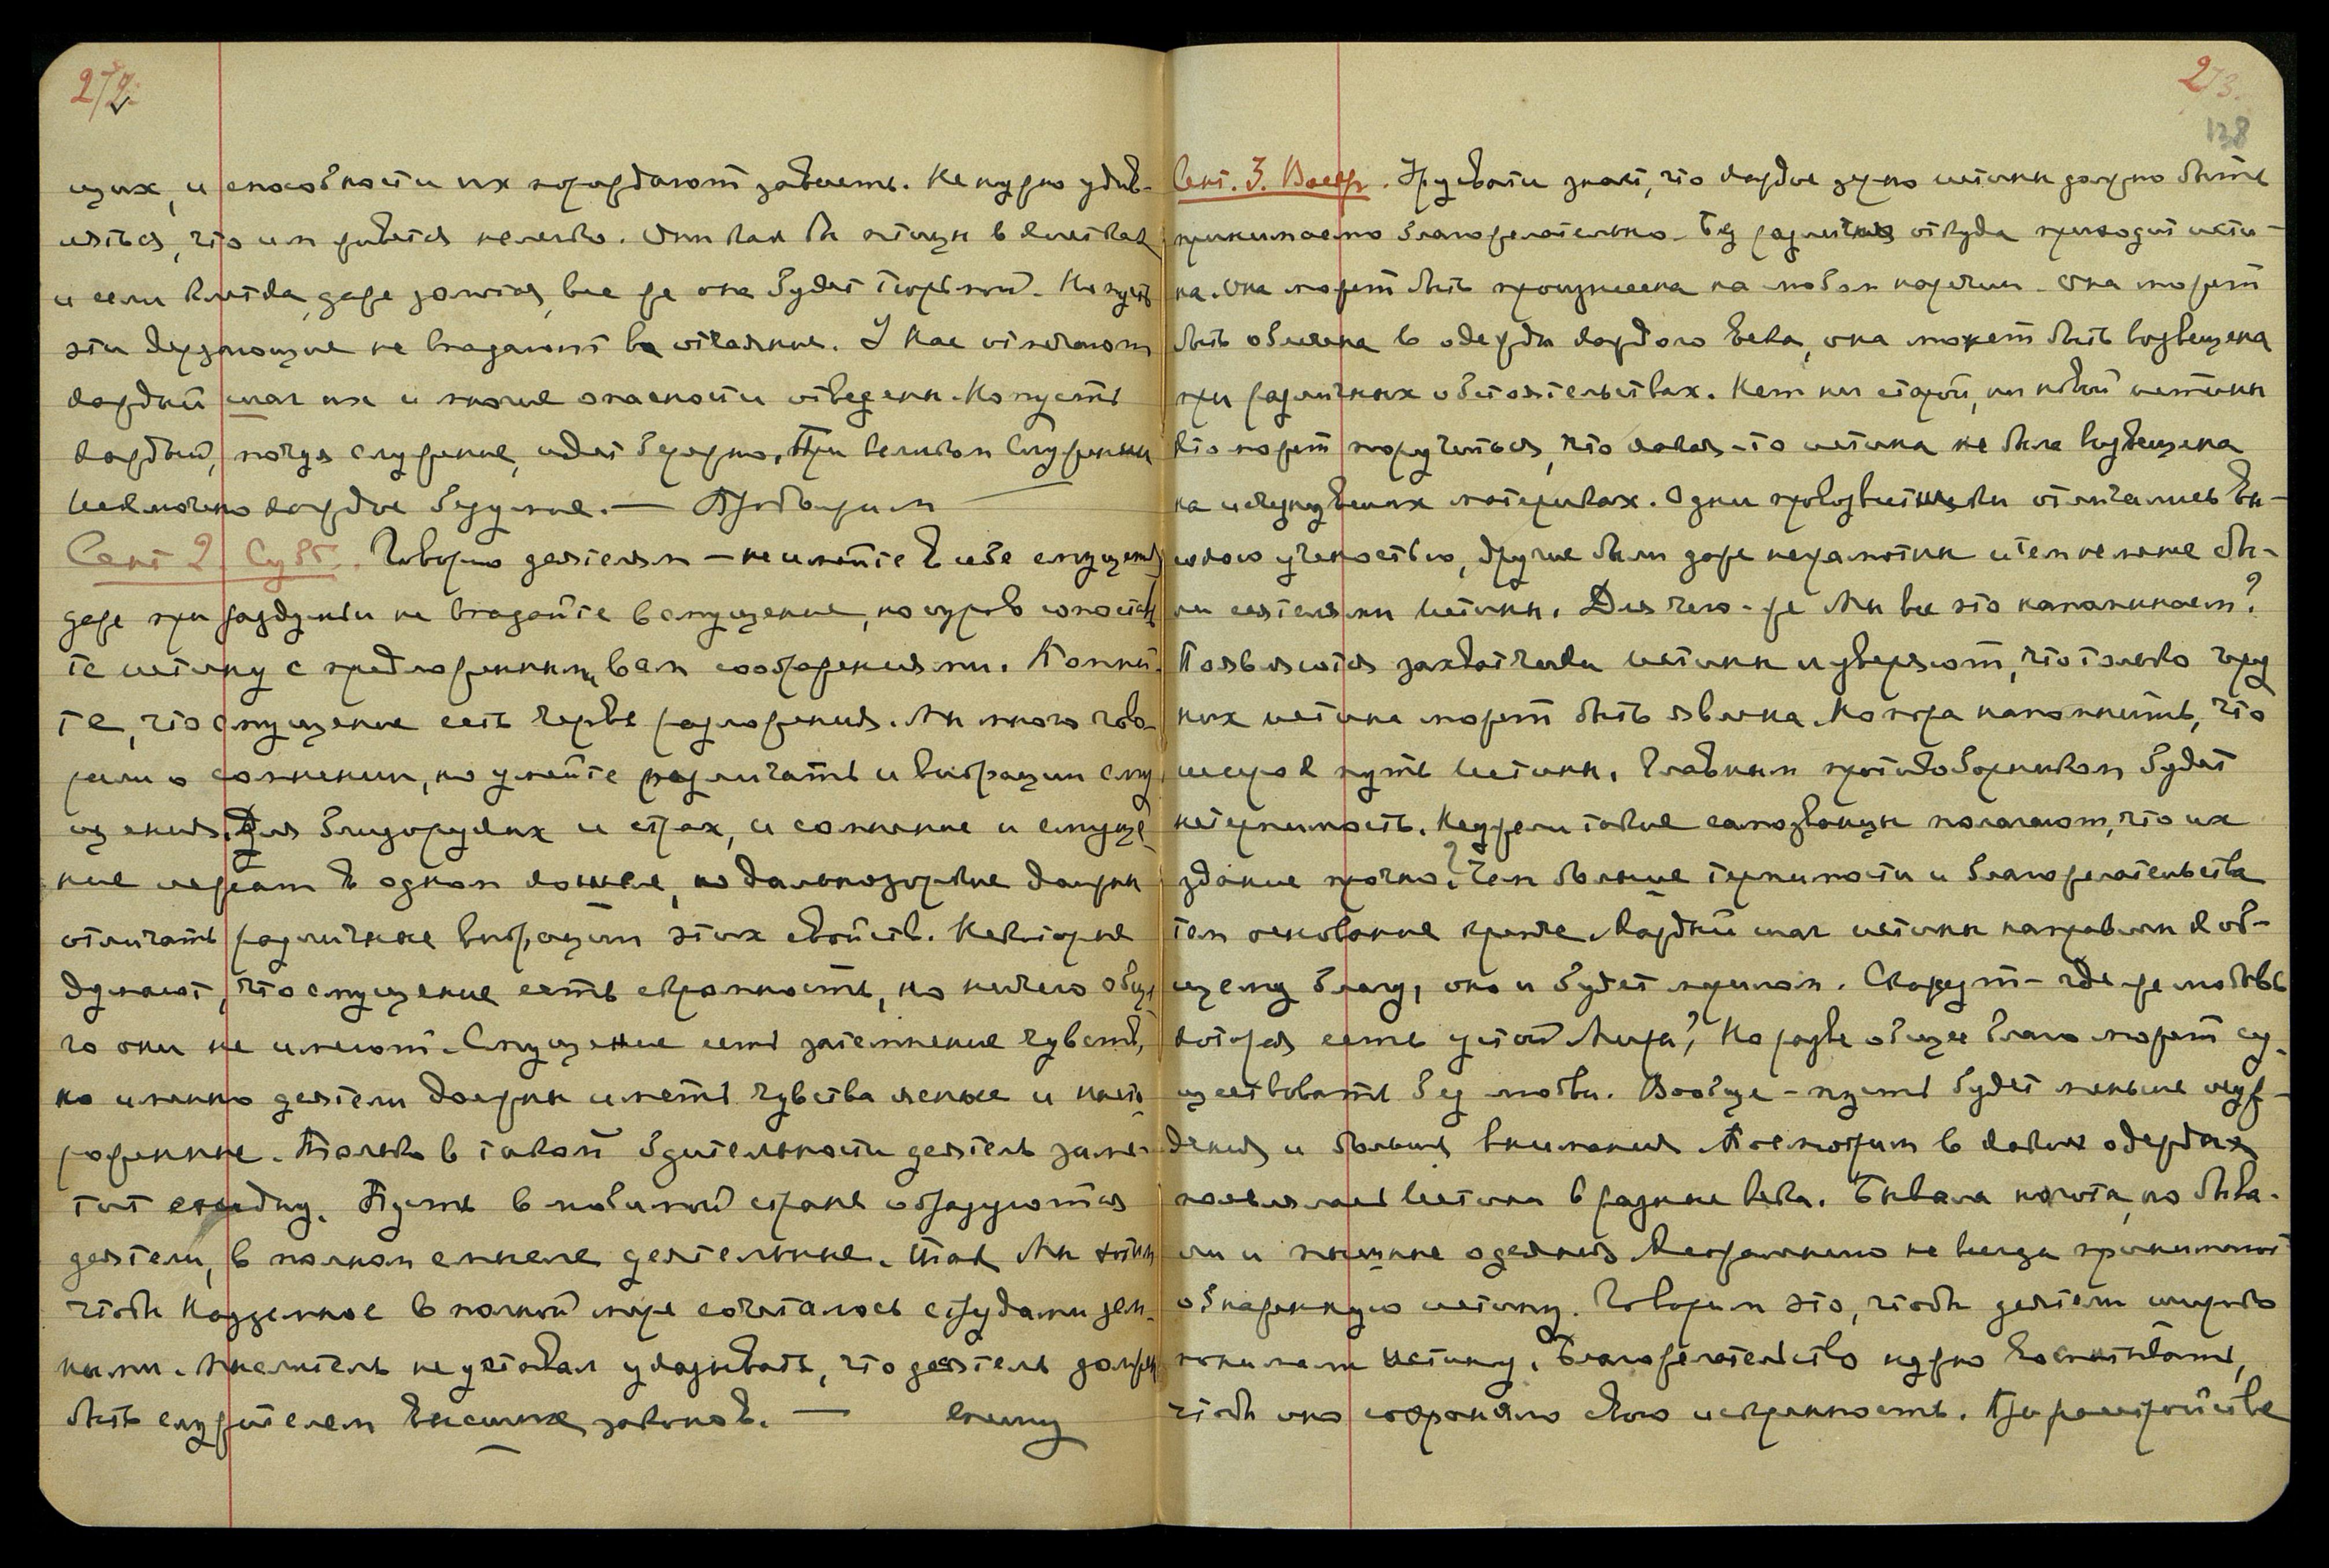 272.
щих, и способности их порождают зависть. Не нужно удив-
ляться, что им живётся нелегко. Они как бы птицы в клетках
и если клетка, даже золотая, все же она будет тюрьмой. Но пусть
эти дерзающие не впадают в отчаяние. У Нас отмечают
каждый шаг их и многие опасности отведены. Но пусть
каждый, почуя служение, идет бережно. При великом Служении
исключено каждое безумие. — Проверим
Сент 2. Субб. Говорю деятелям — не имейте в себе смущения
даже при раздумьи не впадайте в смущение, но сурово сопоставь
те истину с предложенными вам соображениями. Помни-
те, что смущение есть червь разложения. Мы много гово-
рили о сомнении, но умейте различать и вибрации сму
щения. Для близоруких и страх, и сомнение и смуще
ние лежат в одном кошеле, но дальнозоркие должны
отличать различные вибрации этих свойств. Некоторые
думают, что смущение есть скромность, но ничего обще
го они не имеют. Смущение есть затемнение чувств,
но именно деятели должны иметь чувства ясные и насто
роженные. Только в такой бдительности деятель заме-
тит Пусть в любимой стране образуются
деятели, в полном смысле деятельные. Так Мы хотим
чтобы Надземное в полной мере сочеталось с трудами зем-
ными. Мыслитель не уставал указывать, что деятель должен
быть служителем высших законов. —
273.
138
Сент. 3. Воскр. Урусвати знает, что каждое зерно истины должно быть
принимаемо благожелательно. Без различия откуда приходит исти-
на. Она может быть произнесена на любом наречии. Она может
быть облечена в одежды каждого века, она может быть возвещена
при различных обстоятельствах. Нет ни старой, ни новой истины
Кто может поручиться, что какая-то истина не была возвещена
на исчезнувших материках. Одни провозвестники отличались вы-
сокою ученостью, другие были даже неграмотны и тем не менее бы-
ли сеятелями истины. Для чего-же Мы все это напоминаем?
Появляются захватчики истины и уверяют, что только через
них истина может быть явлена. Но пора напомнить, что
широк путь истины. Главным противоборником будет
нетерпимость. Неужели такие самозванцы полагают, что их
здание прочно? Чем больше терпимости и благожелательства
тем основание крепче. Каждый шаг истины направлен к об-
щему благу, оно и будет мерилом. Скажут — где же любовь
которая есть устой Мира? Но разве общее благо может су-
ществовать без любви. Вообще — пусть будет меньше осуж-
дения и больше внимания. Посмотрим в каких одеждах
появлялась Истина в разные века. Бывала нагота, но быва-
ли и пышные одеяния. Несравненно не всегда принимают
обнаженную истину. Говорим это, чтобы деятели широко
понимали Истину. Благожелательство нужно воспитывать,
чтобы оно сохраняло свою искренность. При расстройстве